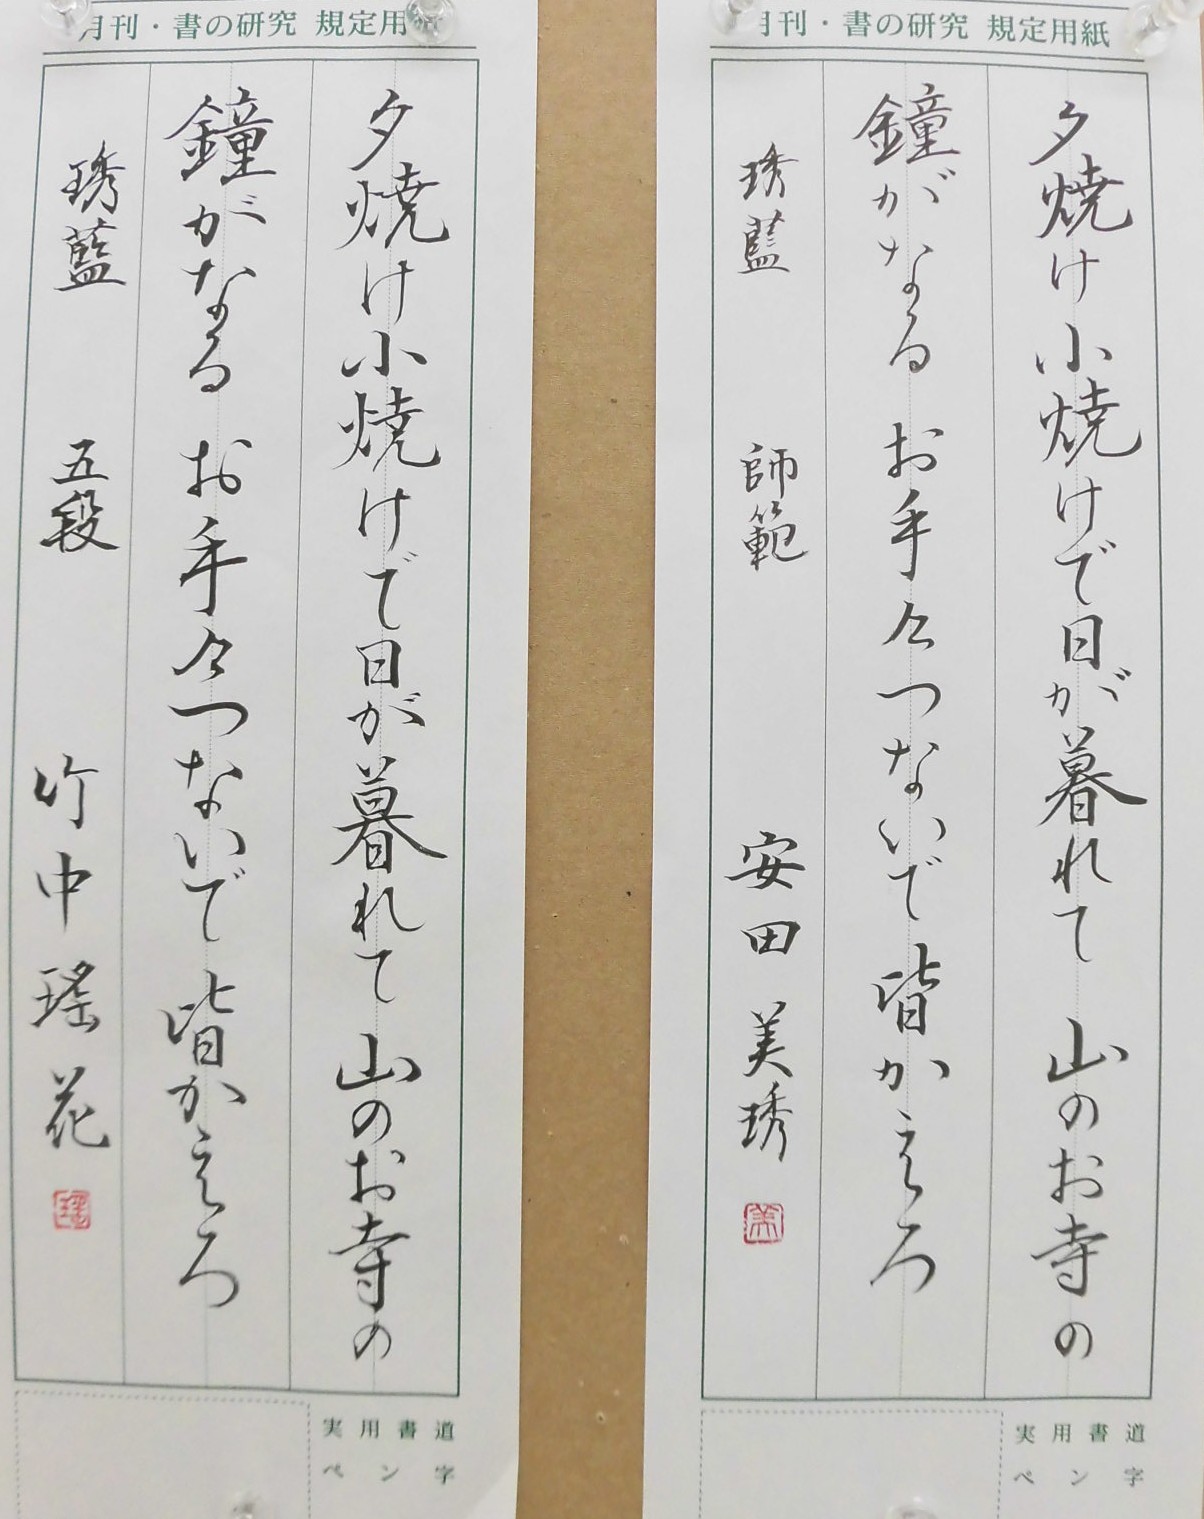 月刊・書の研究 規定用紙
夕焼け小焼けで日が暮れて 山のお寺の
鐘がなる お手々つないで 皆かえろ
琇藍 師範 安田 美琇
実用書道
ペン字
月刊・書の研究 規定用紙
夕焼け小焼けで日が暮れて 山のお寺の
鐘がなる お手々つないで 皆かえろ
琇藍 五段 竹中瑤花
実用書道
ペン字